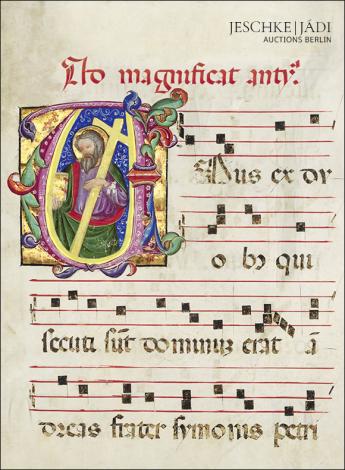 JESCHKE|JÁDI
AUCTIONS BERLIN
Ad magnificat antiᵃ.
UNus ex du
o bꝫ qui
secuti sūt dominuꝫ erat ā
dreas frater symonis petri